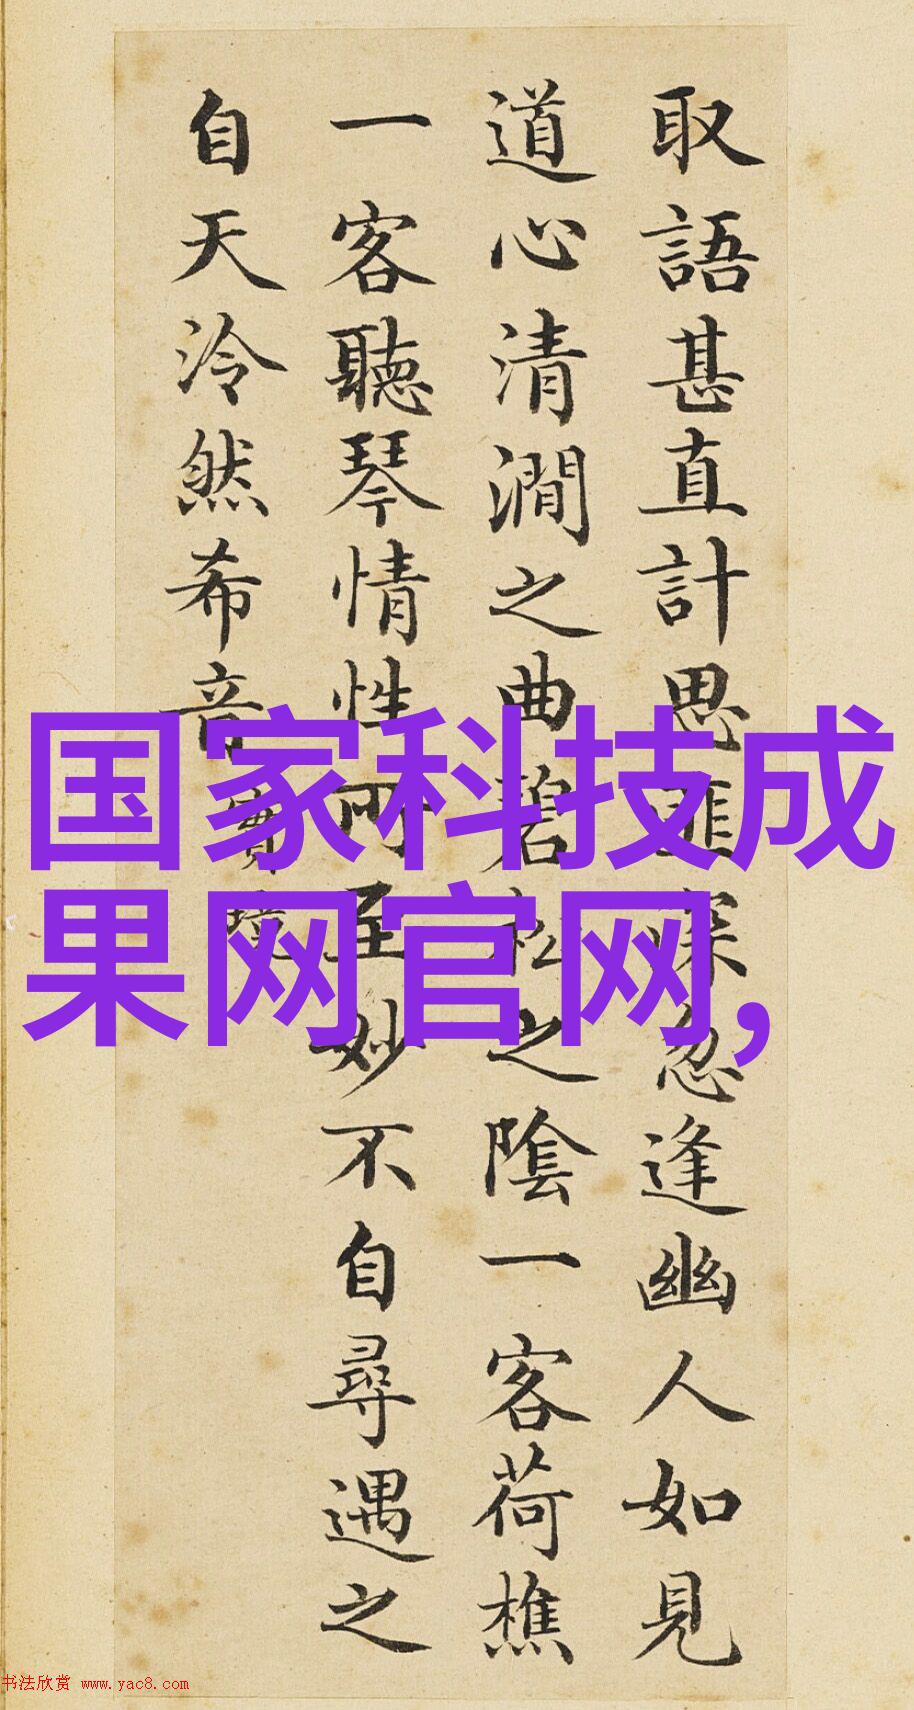 取語甚直計思匪深忽逢幽人如見
道心清澗之曲碧松之陰一客荷樵
一客聽琴情性所至妙不自尋遇之
自天泠然希音
實境
国家科技成
果网官网,
书法欣赏 www.yac8.com